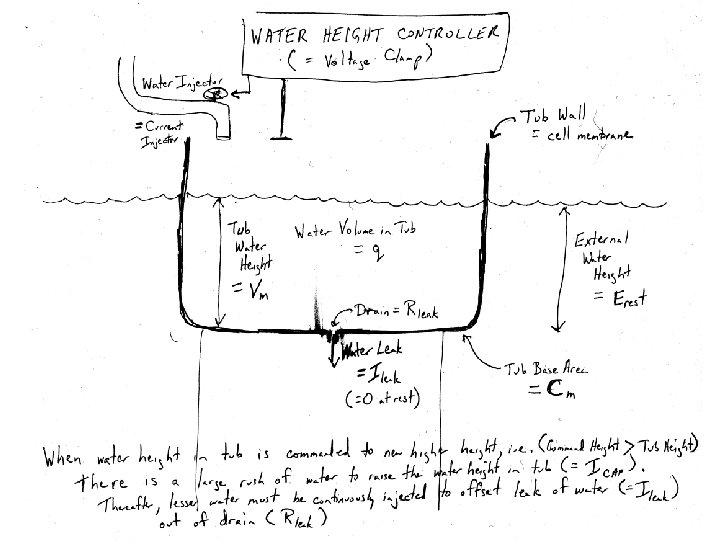 WATER HEIGHT CONTROLLER
(= Voltage Clamp)
Water Injector
= Current
Injector
Tub Wall
= cell membrane
Tub
Water
Height
= Vm
Water Volume in Tub
= q
External
Water
Height
= Erest
Drain = Rleak
Water Leak
= Ileak
(=0 at rest)
Tub Base Area
= Cm
When water height in tub is commanded to new higher height, i.e. (Command Height > Tub Height)
there is a large rush of water to raise the water height in tub (= ICAP).
Thereafter, lesser water must be continuously injected to offset leak of water (= Ileak)
out of drain (Rleak)